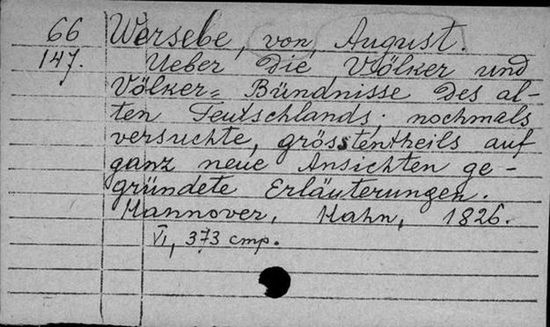 66 Wersebe, von, August.
147. Ueber die Völker und
Völker= Bündnisse des al-
ten Teutschlands; nochmals
versuchte, grösstentheils auf
ganz neue Ansichten ge-
gründete Erläuterungen.
Hannover, Hahn, 1826.
VI, 373 cmp.